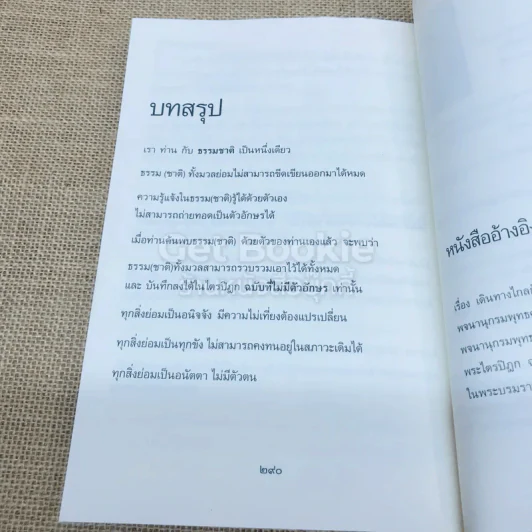 บทสรุป
เรา ท่าน กับ ธรรมชาติ เป็นหนึ่งเดียว
ธรรม (ชาติ) ทั้งมวลย่อมไม่สามารถขีดเขียนออกมาได้หมด
ความรู้แจ้งในธรรม(ชาติ)รู้ได้ด้วยตัวเอง
ไม่สามารถถ่ายทอดเป็นตัวอักษรได้
เมื่อท่านค้นพบธรรม(ชาติ) ด้วยตัวของท่านเองแล้ว จะพบว่า
ธรรม(ชาติ)ทั้งมวลสามารถรวบรวมเอาไว้ได้ทั้งหมด
และ บันทึกลงได้ในไตรปิฎก ฉบับที่ไม่มีตัวอักษร เท่านั้น
ทุกสิ่งย่อมเป็นอนิจจัง มีความไม่เที่ยงต้องแปรเปลี่ยน
ทุกสิ่งย่อมเป็นทุกขัง ไม่สามารถคงทนอยู่ในสภาวะเดิมได้
ทุกสิ่งย่อมเป็นอนัตตา ไม่มีตัวตน
๒๙๐
Get Bookie
หนังสืออ้างอิง
เรื่อง เดินทางไกล
พจนานุกรมพุทธ
พจนานุกรมพุทธ
พระไตรปิฎก
ในพระบรมรา